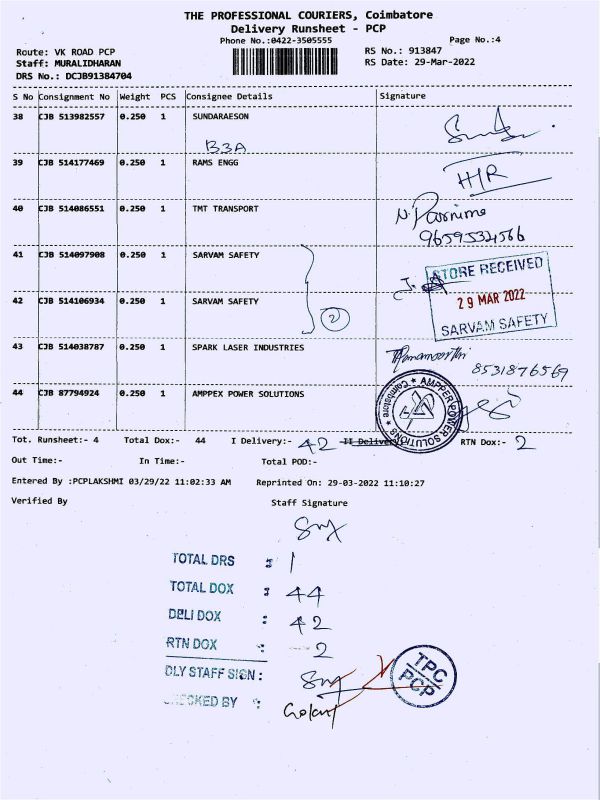 THE PROFESSIONAL COURIERS, Coimbatore
Delivery Runsheet - PCP
Phone No.:0422-3505555
Page No.:4
Route: VK ROAD PCP
RS No.: 913847
Staff: MURALIDHARAN
RS Date: 29-Mar-2022
DRS No.: DCJB91384704
S No Consignment No Weight PCS Consignee Details Signature
38 CJB 513982557 0.250 1 SUNDARAESON
B3A
39 CJB 514177469 0.250 1 RAMS ENGG
H/R
40 CJB 514086551 0.250 1 TMT TRANSPORT
9659534566
41 CJB 514097908 0.250 1 SARVAM SAFETY
STORE RECEIVED
29 MAR 2022
SARVAM SAFETY
42 CJB 514106934 0.250 1 SARVAM SAFETY
2
43 CJB 514038787 0.250 1 SPARK LASER INDUSTRIES
8531876569
44 CJB 87794924 0.250 1 AMPPEX POWER SOLUTIONS
Tot. Runsheet:- 4 Total Dox:- 44 I Delivery:- 42 II Delivery RTN Dox:- 2
Out Time:- In Time:- Total POD:-
Entered By :PCPLAKSHMI 03/29/22 11:02:33 AM Reprinted On: 29-03-2022 11:10:27
Verified By Staff Signature
TOTAL DRS : 1
TOTAL DOX : 44
DELI DOX : 42
RTN DOX : 2
DLY STAFF SIGN :
CHECKED BY :
TPC
PCP